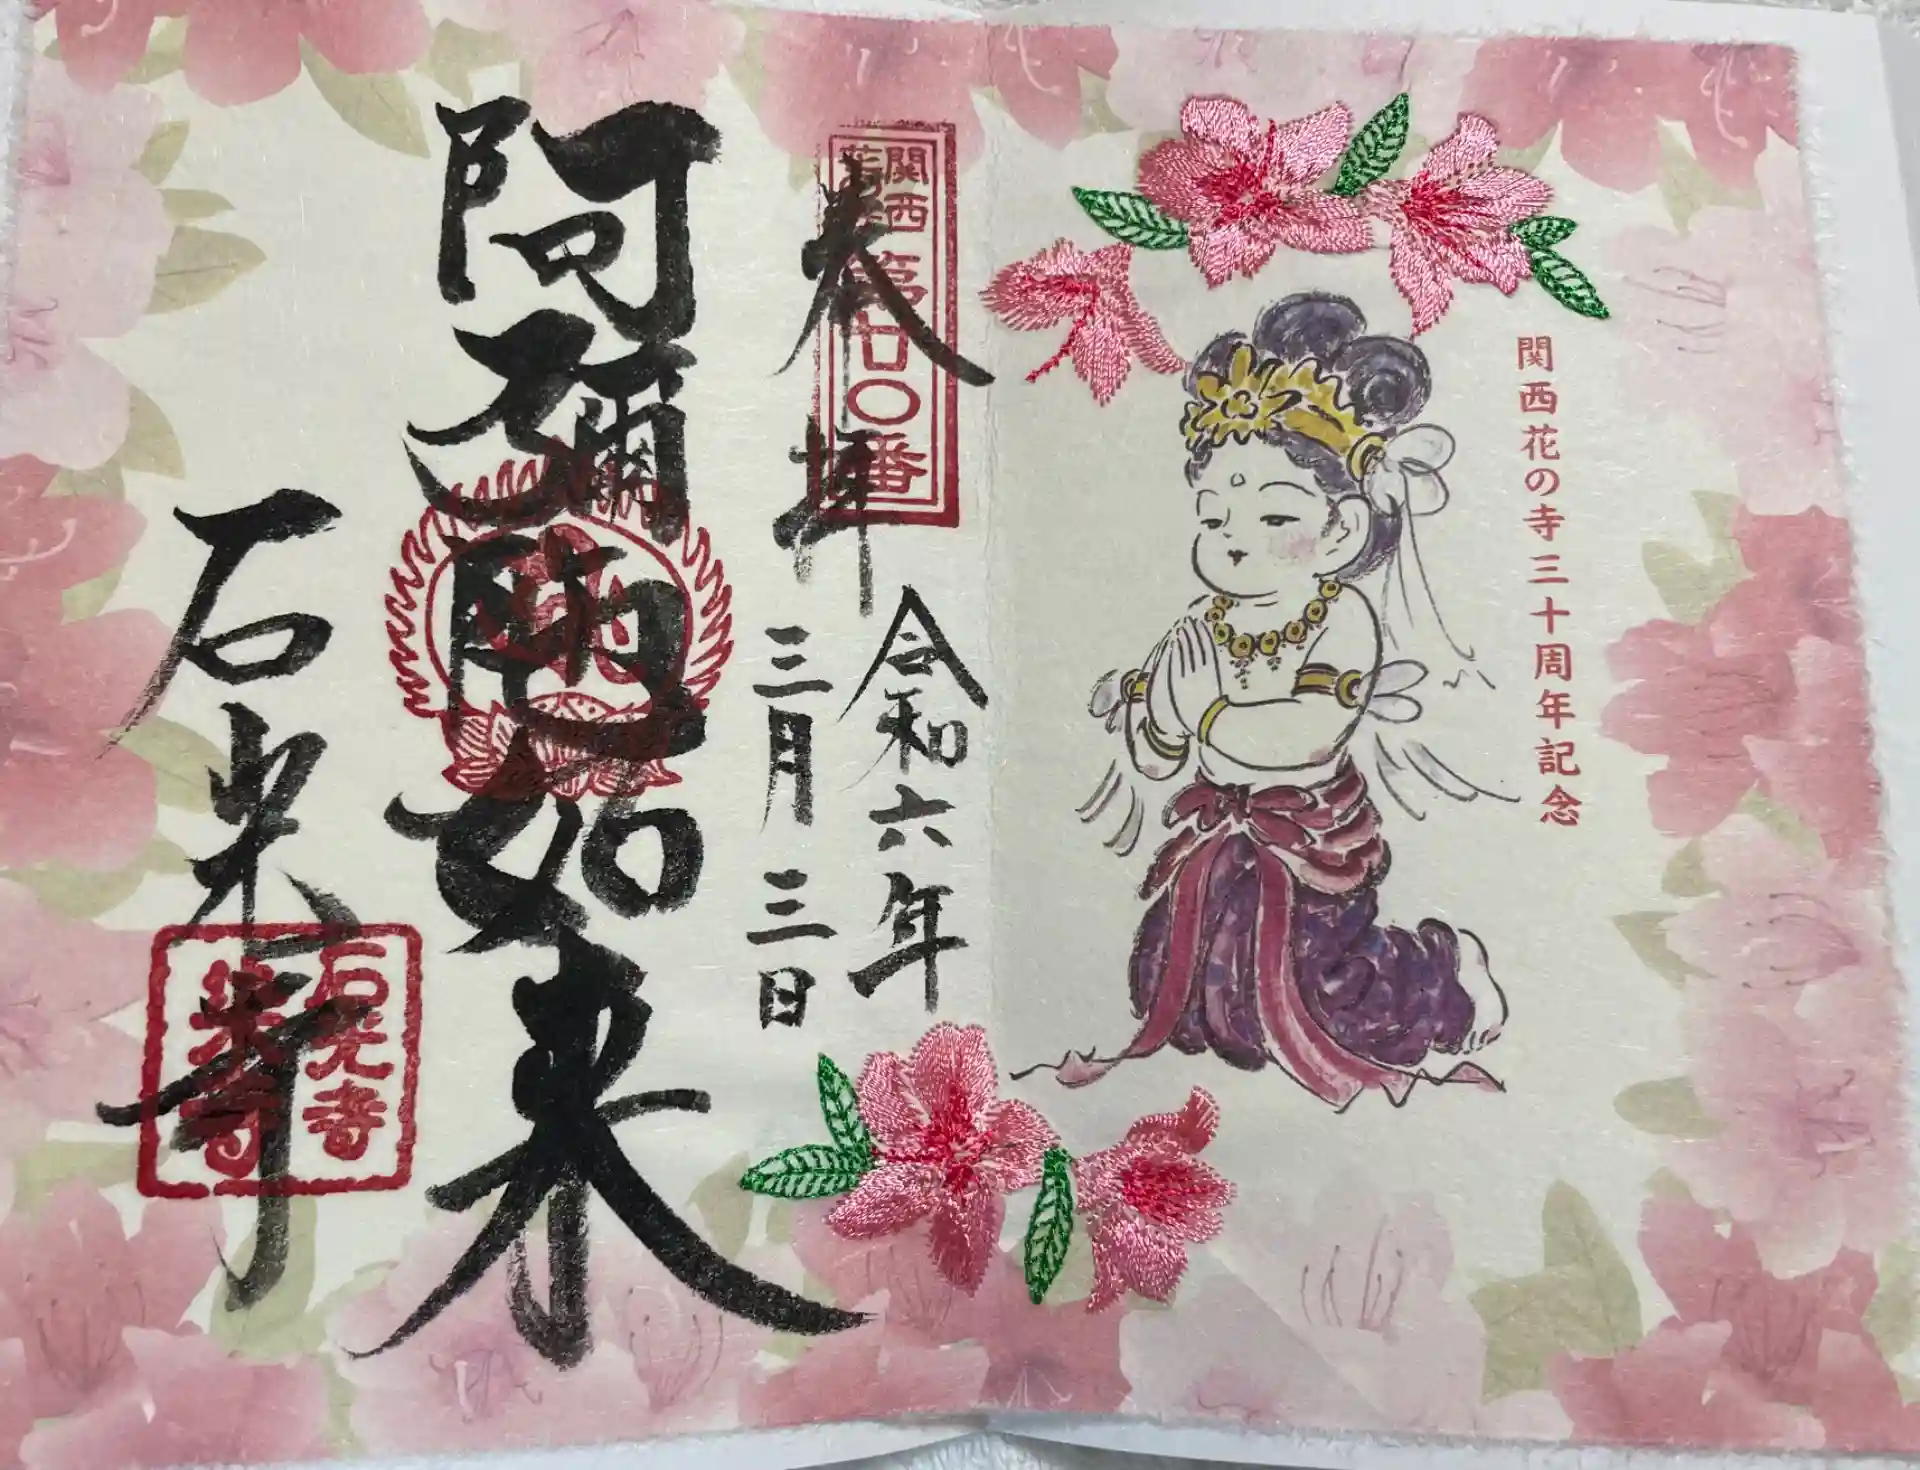 関西花の寺三十周年記念
奉拝
関西
花の寺
第廿〇番
令和六年
三月三日
阿彌陀如来
石光寺
石光寺